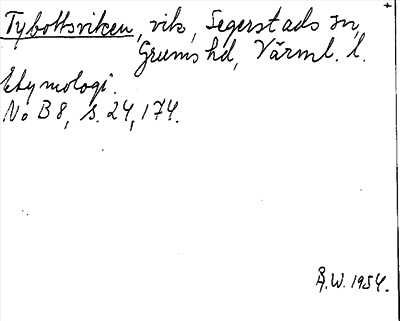 Tybottsviken, vik, Segerstads sn,
Grums hd, Värml. l.
Etymologi.
No B 8, s. 24, 174.
Å.W. 1954.